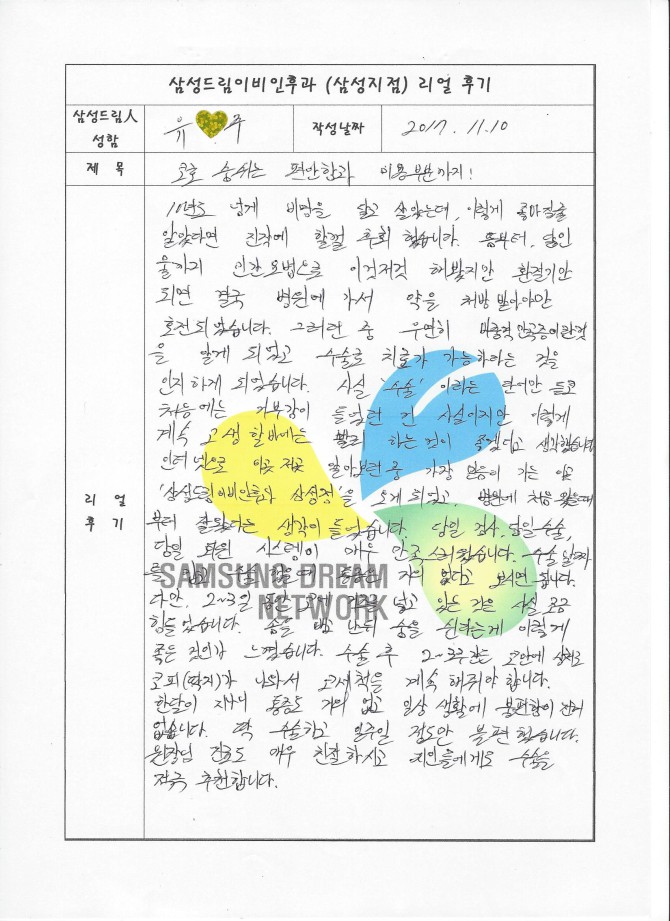 삼성드림이비인후과 (삼성지점) 리얼 후기
삼성드림人
성함
유 주
작성날짜
2017. 11. 10
제 목
코로 숨쉬는 편안함과 미용부분까지!
10년도 넘게 비염을 달고 살았는데, 이렇게 좋아질줄
알았다면 진작에 할껄 후회 했습니다. 뜸부터, 달인
물까지 민간요법으로 이것저것 해봤지만 환절기만
되면 결국 병원에 가서 약을 처방 받아야만
호전되었습니다. 그러던 중 우연히 비중격 만곡증이란것
을 알게 되었고 수술로 치료가 가능하다는 것을
인지하게 되었습니다. 사실 '수술' 이라는 단어만 듣고
처음에는 거부감이 들었던 건 사실이지만 이렇게
계속 고생할바에는 빨리 하는것이 좋겠다고 생각했습니다
인터넷으로 이곳 저곳 알아보던 중 가장 믿음이 가는 이곳
'삼성드림이비인후과 삼성점'을 오게 되었고, 병원에 처음 왔을때
부터 잘왔다는 생각이 들었습니다. 당일 검사, 당일 수술,
당일 퇴원 시스템이 매우 만족스러웠습니다. 수술 날짜
를 잡고 수술할때 통증은 거의 없다고 보시면 됩니다.
다만, 2~3일 동안 코에 거즈를 넣고 있는 것은 사실 조금
힘들었습니다. 솜을 빼고 난뒤 숨을 쉰다는게 이렇게
좋은 것인가 느꼈습니다. 수술 후 2~3주간은 코안에 상처로
코피(딱지)가 나와서 코세척을 계속 해줘야 합니다.
한달이 지나니 통증도 거의 없고 일상 생활에 불편함이 전혀
없습니다. 딱 수술하고 일주일 정도만 불편했습니다.
원장님 진료도 매우 친절하시고 지인들에게도 수술을
적극 추천합니다.
리 얼
후 기
SAMSUNG DREAM
NETWORK